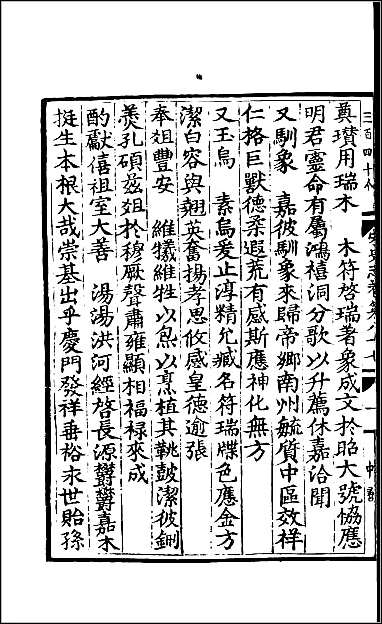 奠瓚用瑞木　木符啓瑞著象成文於昭大號恊應
明君靈命有屬鴻禧洞分歌以升薦休嘉洽聞
又馴象　嘉彼馴象來歸帝鄉南州毓質中區效祥
仁格巨獸德柔遐荒有感斯應神化無方
又玉烏　素烏爰止淳精允臧名符瑞牒色應金方
潔白容與翹英奮揚孝思攸感皇德逾張
奉俎豐安　維犧維牲以炰以烹植其鞉鼓潔彼鉶
羹孔碩兹俎於穆厥聲肅雍顯相福禄來成
酌獻僖祖室大善　湯湯洪河經啓長源鬱鬱嘉木
挺生本根大哉崇基出乎慶門發祥垂裕永世貽孫
三百四十